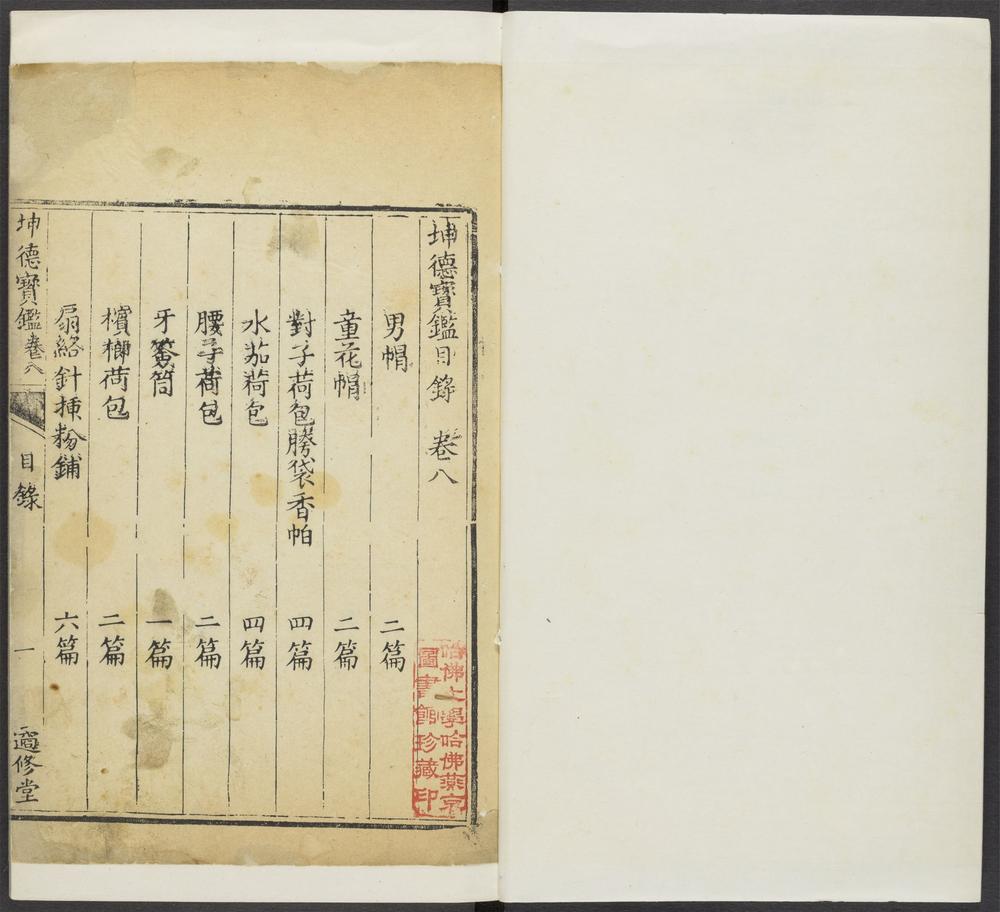 坤德寶鑑目錄　卷八
男帽　二篇
童花帽　二篇
對子荷包謄袋香帕　四篇
水茄荷包　四篇
腰子荷包　二篇
牙籤筒　一篇
檳榔荷包　二篇
扇絡針揷粉鋪　六篇
坤德寶鑑卷八　目錄　一　遹修堂
哈佛大學哈佛燕京
圖書館珍藏印